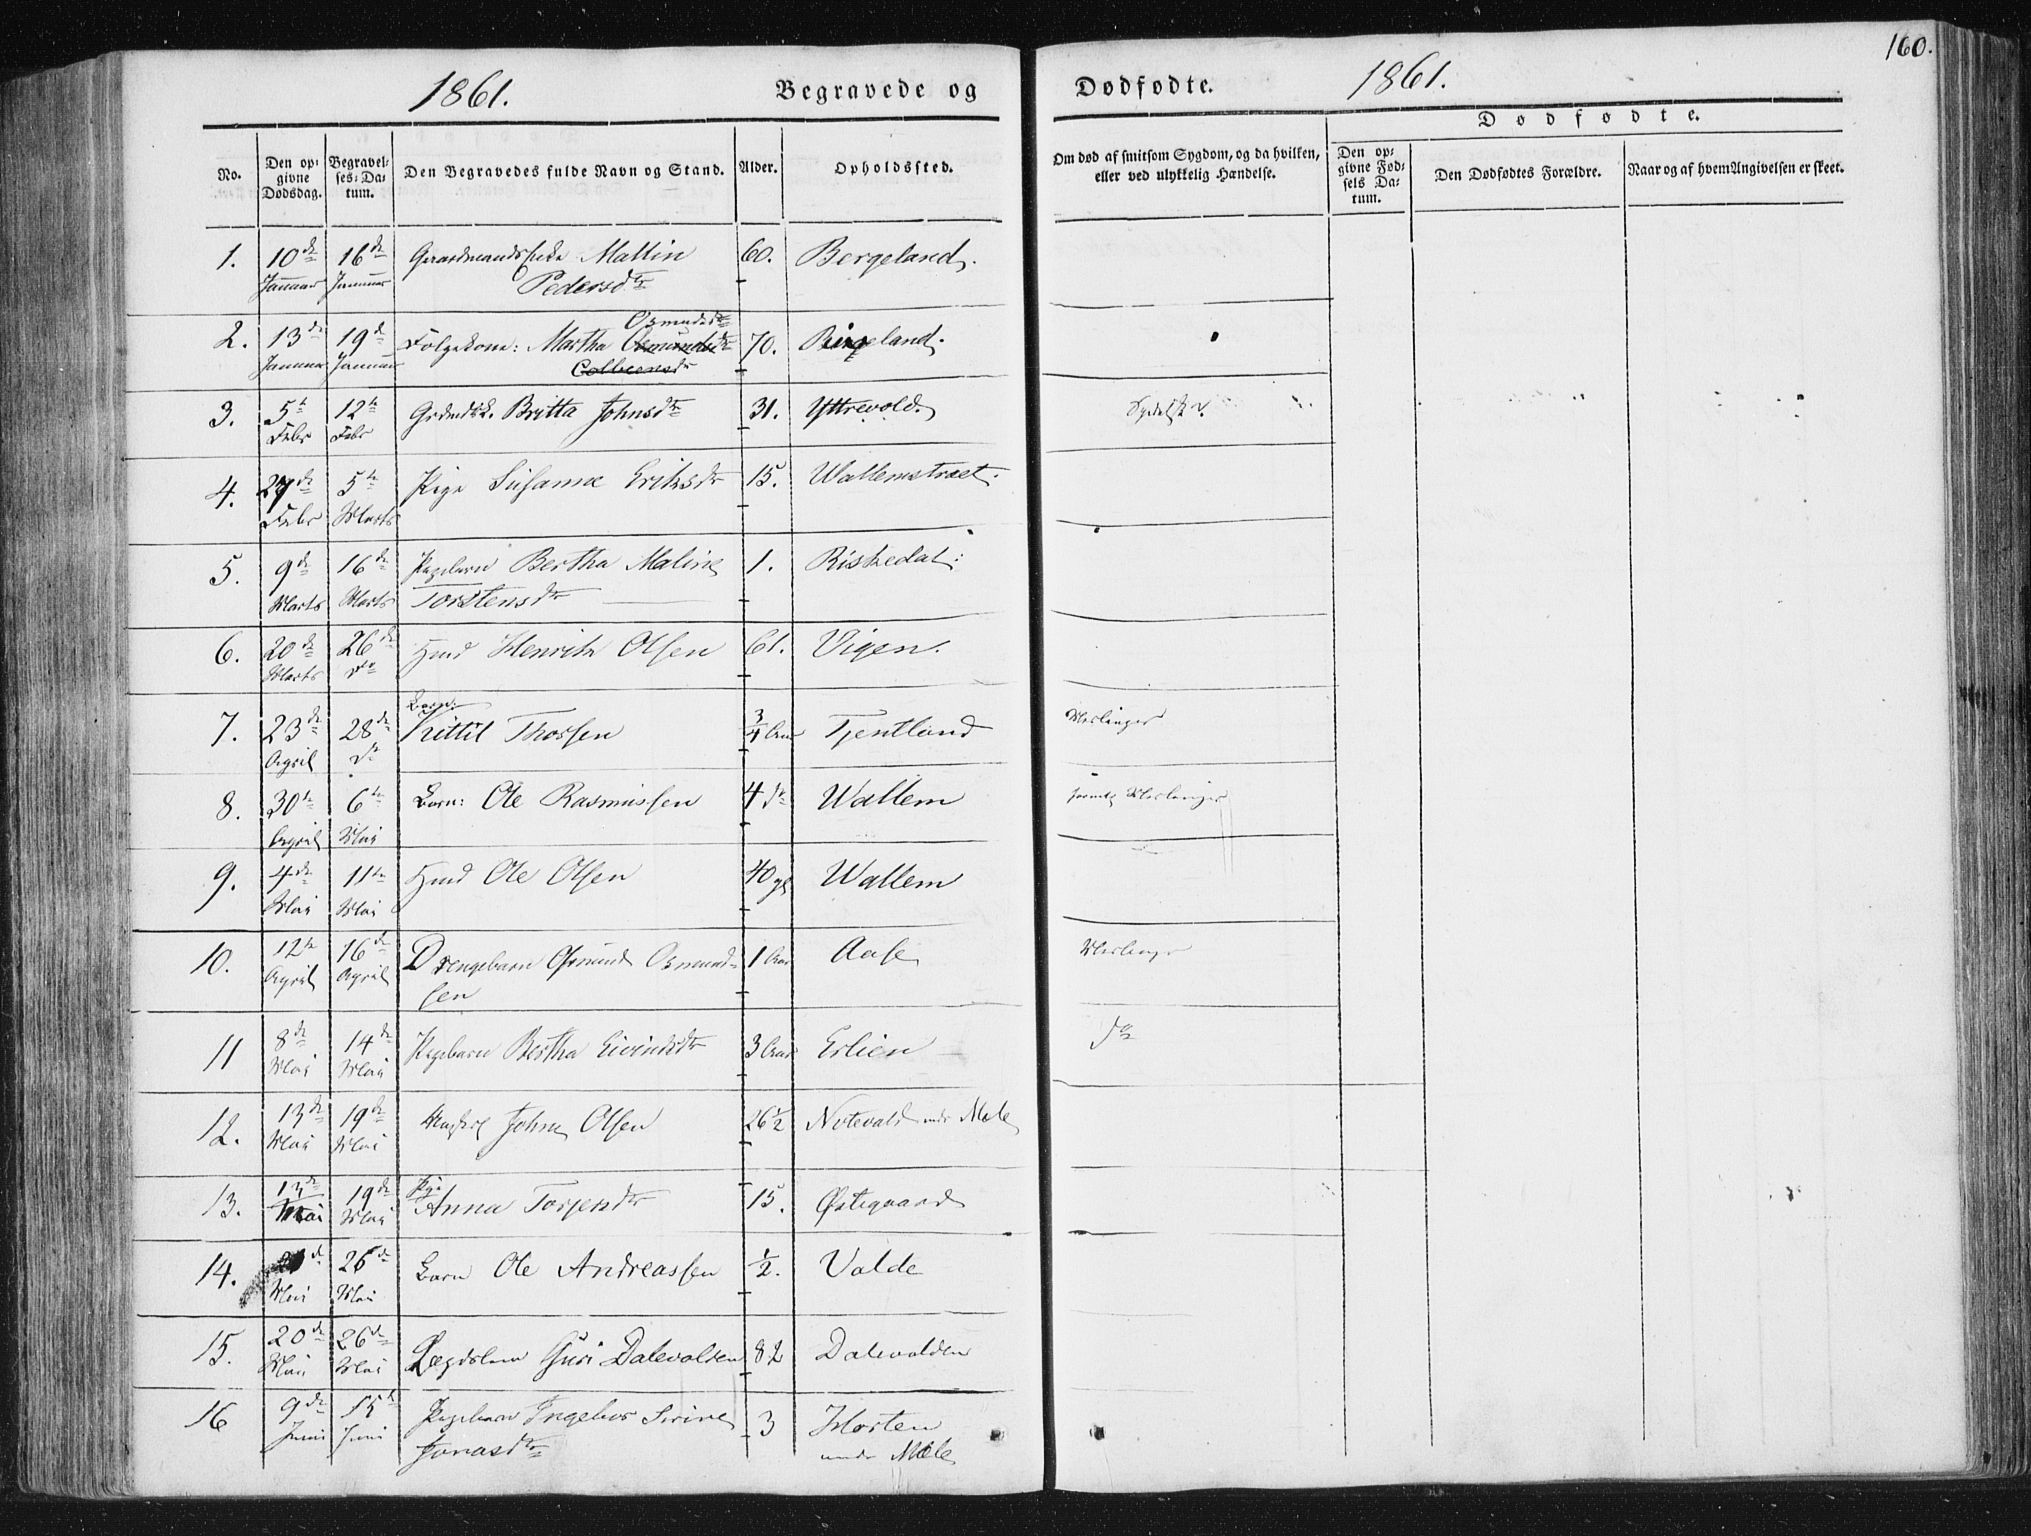 160.
1861. Begravede og Dødfødte. 1861.
No. | Den opgivne Dødsdag. | Begravelses-Datum. | Den Begravedes fulde Navn og Stand. | Alder. | Opholdssted. | Om død af smitsom Sygdom, og da hvilken, eller ved ulykkelig Hændelse. | Dødfødte. | Den opgivne Fødsels Datum. | Den Dødfødtes Forældre. | Naar og af hvem Angivelsen er skeet.
1. 10de Januar 16de Januar Mallin 60. Bergeland.
Pedersdtr
Osmundsdtr
2. 13de Januar 19de Januar Folgekone: Martha 70. Birgeland.
3. 5te Febr 12te Febr Britta Johnsdtr 31. Yttrevold.
4. 27de Febr 5te Marts Pige Susanne Eriksdtr 15. Wallemstræet.
5. 9de Marts 16de Marts Pigebarn Bertha Maline 1. Riskedal:
Torstensdtr
6. 20de Marts 26de do Hmd Henrik Olsen 61. Vigen.
Barn:
7. 23de April 28de do Kittil Thorsen 3/4 Aar Tjentland Meslinger
8. 30te April 6te Mai Barn: Ole Rasmussen 4 do Wallem Meslinger
9. 4de Mai 11te Mai Hmd Ole Olsen 40 Wallem
10. 12te April 16de April Drengebarn Osmund Osmund- 1 Aar Aase Meslinger
sen
11 8de Mai 14de Mai Pigebarn Bertha Eivindsdtr 3 Aar Erlien do
12. 13de Mai 19de Mai John Olsen 26 1/2 Notevold under Mæle
Pige
13. 13de Mai 19de Mai Anna Torjensdtr 15. Østegaard
14. Mai 26de Mai Barn Ole Andreassen 1/2. Valde
15. 20de Mai 26de Mai Lægdslem Guri Dalevolden 82 Dalevolden
16 9de Juni 15de Juni Pigebarn Ingebor Serine 3 Horten
Jonasdtr under Mæle